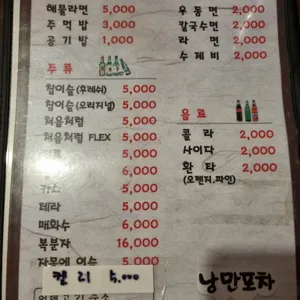 해물라면 5,000
주먹밥 3,000
공기밥 1,000
주류
참이슬(후레쉬) 5,000
참이슬(오리지널) 5,000
처음처럼 5,000
처음처럼 FLEX 5,000
5,000
6,000
카스 5,000
테라 5,000
매화수 6,000
복분자 16,000
자몽에이슬 5,000
켈리 5,000
우동면 2,000
칼국수면 2,000
라면 2,000
수제비 2,000
음료
콜라 2,000
사이다 2,000
환타 2,000
(오렌지,파인)
낭만포차